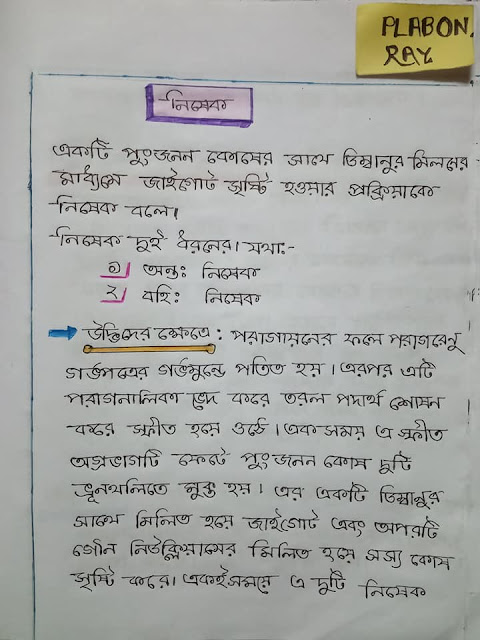 PLABON.
RAY
নিষেক
একটি পুংজনন কোষের সাথে ডিম্বানুর মিলনের
মাধ্যমে জাইগোট সৃষ্টি হওয়ার প্রক্রিয়াকে
নিষেক বলে।
নিষেক দুই ধরনের। যথা:-
১। অন্তঃ নিষেক
২। বহিঃ নিষেক
উদ্ভিদের ক্ষেত্রে : পরাগায়নের ফলে পরাগরেনু
গর্ভপত্রের গর্ভমুন্ডে পতিত হয়। এরপর এটি
পরাগনালিকা ভেদ করে তরল পদার্থ শোষন
করে স্ফীত হয়ে ওঠে। এক সময় এ স্ফীত
অগ্রভাগটি ফেটে পুংজনন কোষ দুটি
ভ্রূনথলিতে মুক্ত হয়। এর একটি ডিম্বানুর
সাথে মিলিত হয়ে জাইগোট এবং অপরটি
গৌন নিউক্লিয়াসের মিলিত হয়ে সস্য কোষ
সৃষ্টি করে। একইসময়ে এ দুটি নিষেক